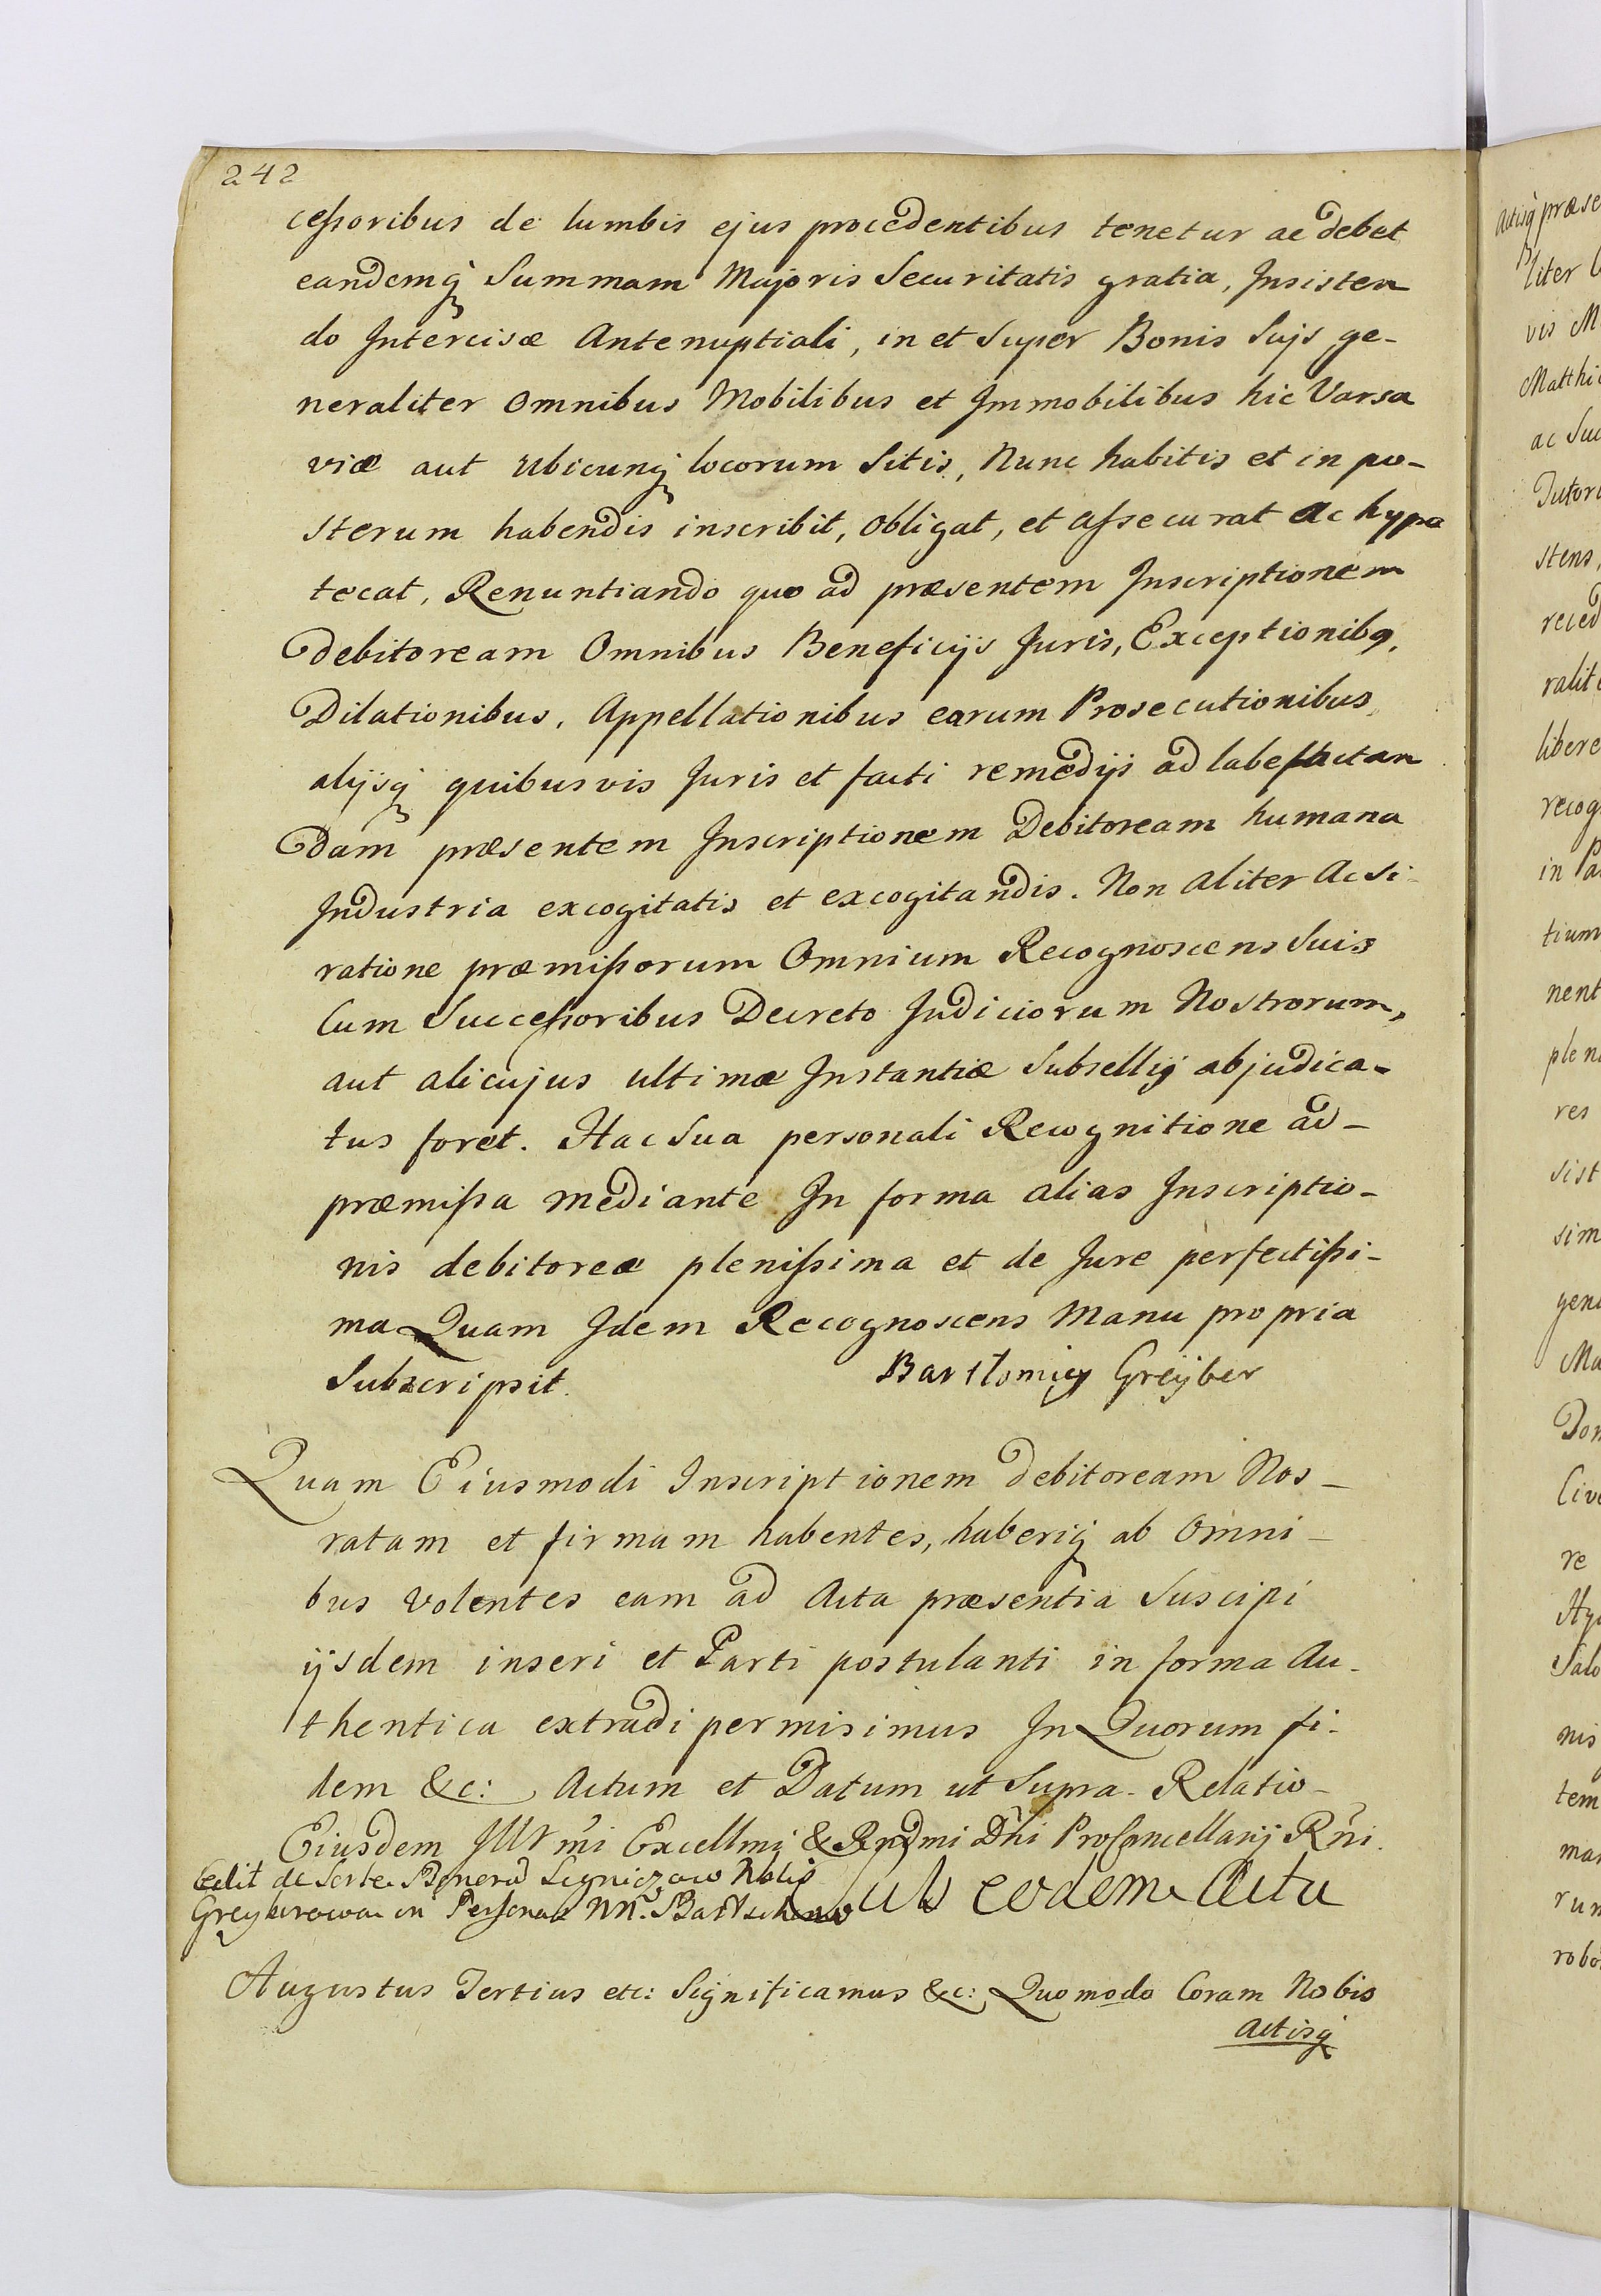 242
cessoribus de lumbis ejus procedentibus tenetur ac debet
eandemq₃ Summam Majoris Securitatis gratia, Insisten
do Intercisæ Antenuptiali, in et Super Bonis Suis ge-
neraliter Omnibus Mobilibus et Immobilibus hic Varsa
viæ aut ubicunq₃ locorum Sitis, Nunc habitis et in po-
sterum habendis inscribit, obligat, et assecurat ac hypo
tecat, Renuntiando quo ad præsentem Inscriptionem
debitoream Omnibus Beneficijs Juris, Exceptionibꝰ,
Dilationibus, Appellationibus earum Prosecutionibus,
alijsq₃ quibusvis Juris et facti remedijs ad labefactan
dam præsentem Inscriptionem Debitoream humana
Industria excogitatis et excogitandis. Non aliter Ac si
ratione præmissorum Omnium Recognoscens Suis
Cum Successoribus Decreto Judiciorum Nostrorum,
aut alicujus ultimæ Instantiæ Subsellij abjudica-
tus foret. Hac Sua personali Recognitione ad-
præmissa mediante In forma alias Inscriptio-
nis debitoreæ plenissima et de Jure perfectissi-
ma Quam Idem Recognoscens Manu propria
Subscripsit. Bartłomiey Greÿber
Quam Eiusmodi Inscriptionem debitoream Nos-
ratam et firmam habentes, haberiq₃ ab Omni-
bus volentes eam ad Acta præsentia Suscipi
ijsdem inseri et Parti postulanti in forma Au-
thentica extradi permisimus In Quorum fi-
dem &c: Actum et Datum ut Supra. Relatio-
Eiusdem Illrmi Excellmi & Rndmi Dni ProCancellarij Rni.
Edit de Sorte Bonerū Ligniczow Nblis
Greyberowa in Personas NN. Bartschow
Sub eodem Actu
Augustus Tertius etc: Significamus &c: Quomodo Coram Nobis
Actisq₃
Actisq₃ præse
liter
vis M
Matthi
ac Suc
Tutor
stens,
reced
ralit
libere
recog
in Pa
tium
nent
plen
res
sist
sim
gene
Ma
Dom
Civ
re
Hy
Salo
nis
tem
man
run
robo